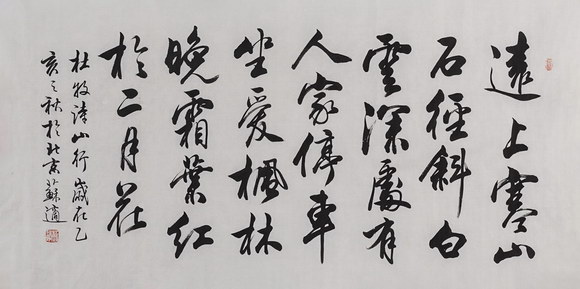 遠上寒山
石徑斜白
雲深處有
人家停車
坐愛楓林
晚霜葉紅
於二月花
杜牧诗山行歲在乙
亥之秋於北京蘇適